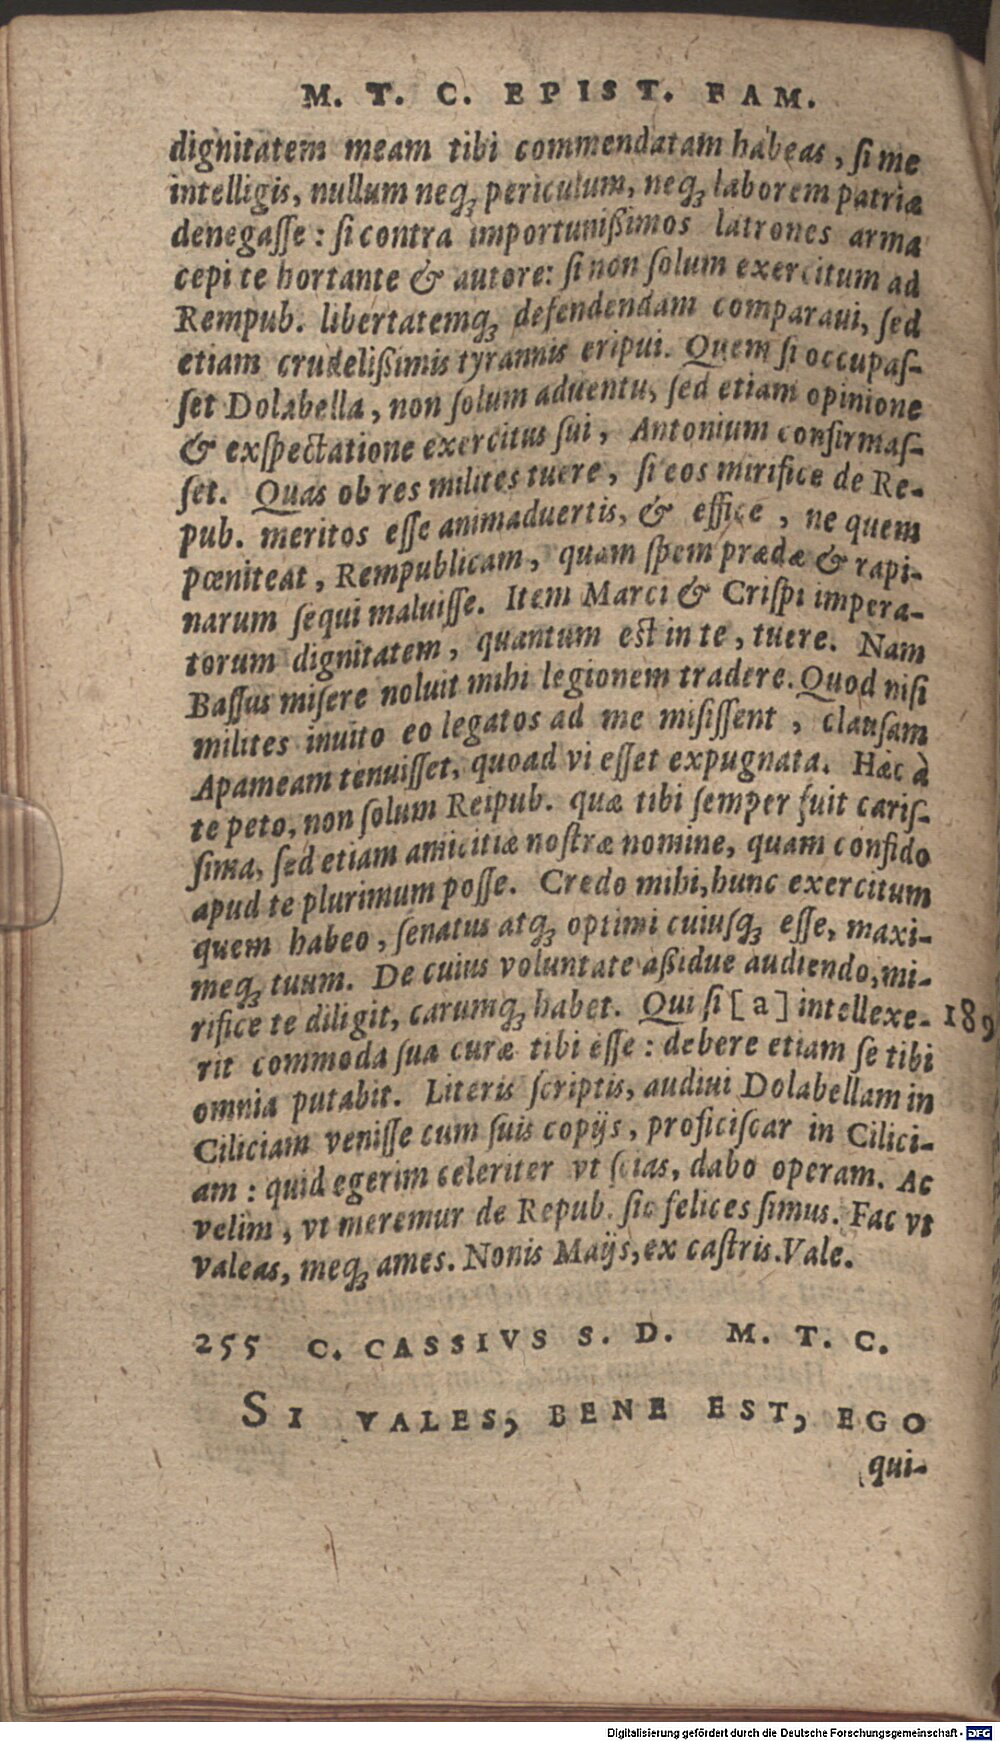 M. T. C. EPIST. FAM.
dignitatem meam tibi commendatam habeas, ſi me
intelligis, nullum neqꝫ periculum, neqꝫ laborem patriæ
denegaſſe : ſi contra importunißimos latrones arma
cepi te hortante & autore: ſi non ſolum exercitum ad
Rempub. libertatemqꝫ defendendam comparaui, ſed
etiam crudelißimis tyrannis eripui. Quem ſi occupaſ-
ſet Dolabella, non ſolum aduentu, ſed etiam opinione
& exſpectatione exercitus ſui, Antonium confirmaſ-
ſet. Quas ob res milites tuere, ſi eos mirifice de Re-
pub. meritos eſſe animaduertis, & effice, ne quem
pœniteat, Rempublicam, quam ſpem prædæ & rapi-
narum ſequi maluiſſe. Item Marci & Criſpi impera-
torum dignitatem, quantum est in te, tuere. Nam
Baſſus miſere noluit mihi legionem tradere. Quod niſi
milites inuito eo legatos ad me miſiſſent, clauſam
Apameam tenuiſſet, quoad vi eſſet expugnata. Hæc à
te peto, non ſolum Reipub. quæ tibi ſemper fuit cariſ-
ſima, ſed etiam amicitiæ noſtræ nomine, quam confido
apud te plurimum poſſe. Credo mihi, hunc exercitum
quem habeo, ſenatus atqꝫ optimi cuiuſqꝫ eſſe, maxi-
meqꝫ tuum. De cuius voluntate aßidue audiendo, mi-
rifice te diligit, carumqꝫ habet. Qui ſi [a] intellexe- 189
rit commoda ſua curæ tibi eſſe : debere etiam ſe tibi
omnia putabit. Literis ſcriptis, audiui Dolabellam in
Ciliciam veniſſe cum ſuis copijs, proficiſcar in Cilici-
am : quid egerim celeriter vt ſcias, dabo operam. Ac
velim, vt meremur de Repub. ſic felices ſimus. Fac vt
valeas, meqꝫ ames. Nonis Maijs, ex caſtris. Vale.
255 C. CASSIVS S. D. M. T. C.
SI VALES, BENE EST, EGO
qui-
Digitalisierung gefördert durch die Deutsche Forschungsgemeinschaft - DFG